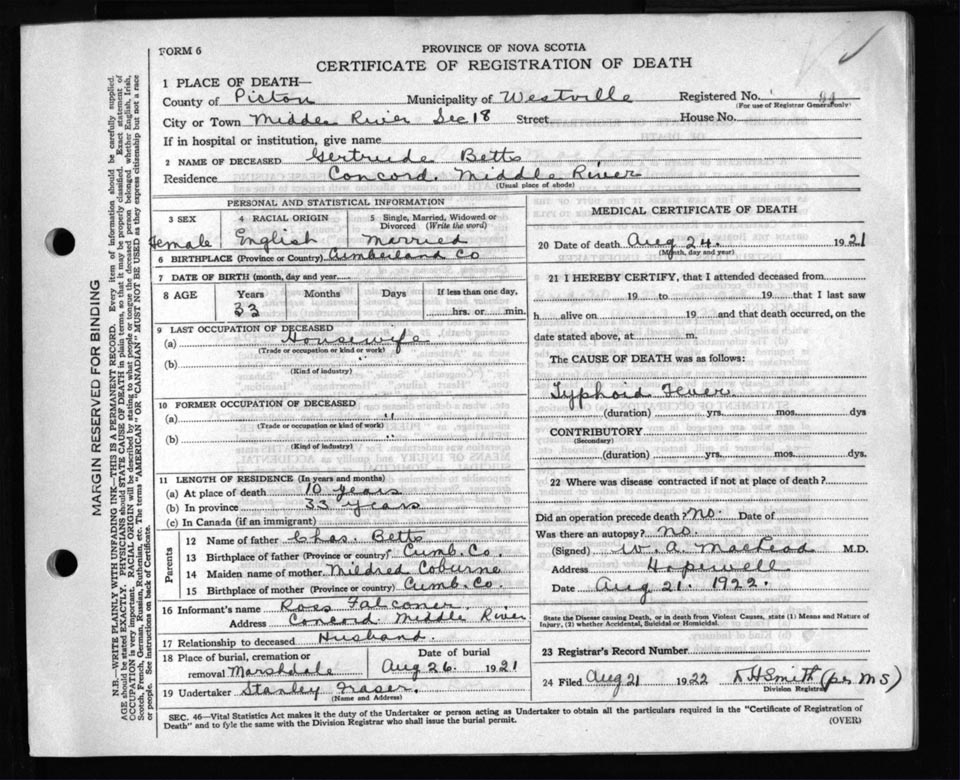 FORM 6
PROVINCE OF NOVA SCOTIA
CERTIFICATE OF REGISTRATION OF DEATH
MARGIN RESERVED FOR BINDING
N.B.—WRITE PLAINLY WITH UNFADING INK—THIS IS A PERMANENT RECORD. Every item of information should be carefully supplied.
AGE should be stated EXACTLY. PHYSICIANS should STATE CAUSE OF DEATH in plain terms, so that it may be properly classified. Exact statement of
OCCUPATION is very important. RACIAL ORIGIN will be described by stating to what people or tongue the deceased person belonged whether English, Irish,
Scotch, French, German, Russian, Ruthenian, etc. The terms "AMERICAN" OR "CANADIAN" MUST NOT BE USED as they express citizenship but not a race
or people. See instructions on back of Certificate.
1 PLACE OF DEATH—
County of Pictou Municipality of Westville Registered No.
(For use of Registrar General only)
City or Town Middle River Sec 18 Street House No.
If in hospital or institution, give name
2 NAME OF DECEASED Gertrude Betts
Residence Concord. Middle River
(Usual place of abode)
PERSONAL AND STATISTICAL INFORMATION
3 SEX 4 RACIAL ORIGIN 5 Single, Married, Widowed or Divorced (Write the word)
Female English Married
6 BIRTHPLACE (Province or Country) Cumberland Co
7 DATE OF BIRTH (month, day and year)
8 AGE Years Months Days If less than one day,
33 hrs. or min.
9 LAST OCCUPATION OF DECEASED
(a) Housewife
(Trade or occupation or kind or work)
(b)
(Kind of industry)
10 FORMER OCCUPATION OF DECEASED
(a) "
(Trade or occupation or kind of work)
(b) "
(Kind of industry)
11 LENGTH OF RESIDENCE (In years and months)
(a) At place of death 10 years
(b) In province 33 years
(c) In Canada (if an immigrant)
Parents
12 Name of father Chas. Betts
13 Birthplace of father (Province or country) Cumb. Co.
14 Maiden name of mother Mildred Coburne
15 Birthplace of mother (Province or country) Cumb. Co.
16 Informant's name Ross Falconer
Address Concord Middle River
17 Relationship to deceased Husband.
18 Place of burial, cremation or removal Marshdale Date of burial Aug 26. 1921
19 Undertaker Stanley Fraser.
(Name and Address)
MEDICAL CERTIFICATE OF DEATH
20 Date of death Aug 24. 1921
(Month, day and year)
21 I HEREBY CERTIFY, that I attended deceased from
19 to 19 that I last saw
h alive on 19 and that death occurred, on the
date stated above, at m.
The CAUSE OF DEATH was as follows:
Typhoid Fever
(duration) yrs. mos. dys
CONTRIBUTORY
(Secondary)
(duration) yrs. mos. dys.
22 Where was disease contracted if not at place of death?
Did an operation precede death? No. Date of
Was there an autopsy? No.
(Signed) W. A. MacLeod M.D.
Address Hopewell
Date Aug 21. 1922.
State the Disease causing Death, or in death from Violent Causes, state (1) Means and Nature of
Injury, (2) whether Accidental, Suicidal or Homicidal.
23 Registrar's Record Number
24 Filed Aug 21 1922 Smith (per MS)
Division Registrar
SEC. 46—Vital Statistics Act makes it the duty of the Undertaker or person acting as Undertaker to obtain all the particulars required in the "Certificate of Registration of
Death" and to fyle the same with the Division Registrar who shall issue the burial permit.
(OVER)